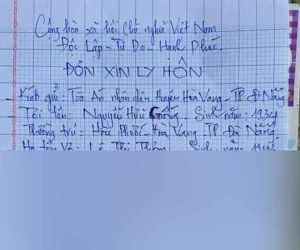 Cộng hòa xã hội chủ nghĩa Việt Nam
Độc Lập - Tự Do - Hạnh Phúc
ĐƠN XIN LY HÔN
- Kính gửi: Tòa Án nhân dân Huyện Hòa Vang - TP Đ Nẵng
- Tôi tên: Nguyễn Hữu - Sinh năm: 1934
Thường trú: Hòa Phước - Hòa Vang TP Đà Nẵng
Họ tên Vợ: Lê Thị Sinh năm